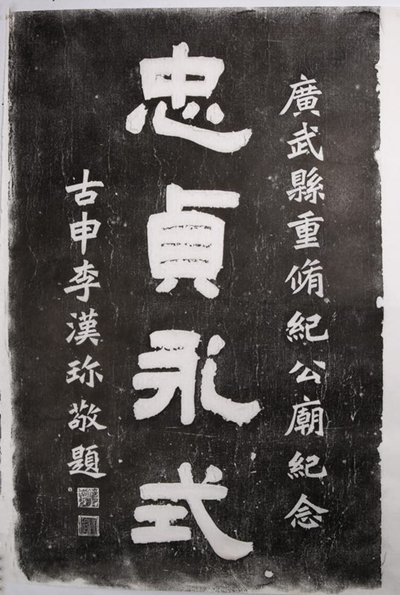 廣武縣重脩紀公廟紀念
忠貞永式
古申李漢珍敬題